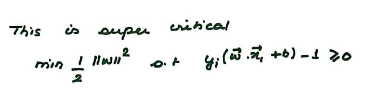 This is super critical
min 1/2 ||w||² s.t yᵢ(w⃗ . x⃗ᵢ + b) - 1 ≥ 0